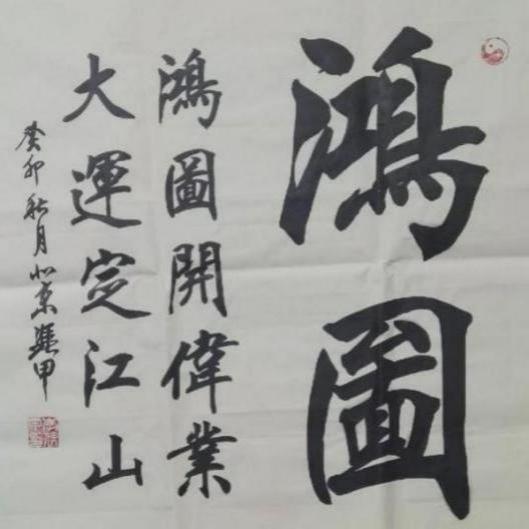 鴻圖
鴻圖開偉業
大運定江山
癸卯秋月北京躍甲